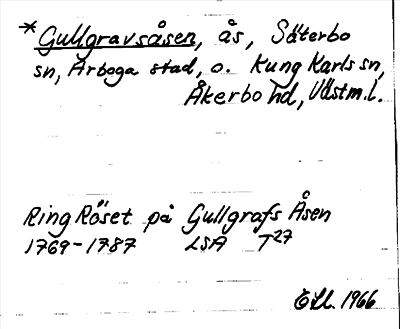 * Gullgravsåsen, ås, Säterbo
sn, Arboga stad, o. Kung Karls sn,
Åkerbo hd, Västm. l.
Ring Röset på Gullgrafs Åsen
1769-1787 LSA T27
1966